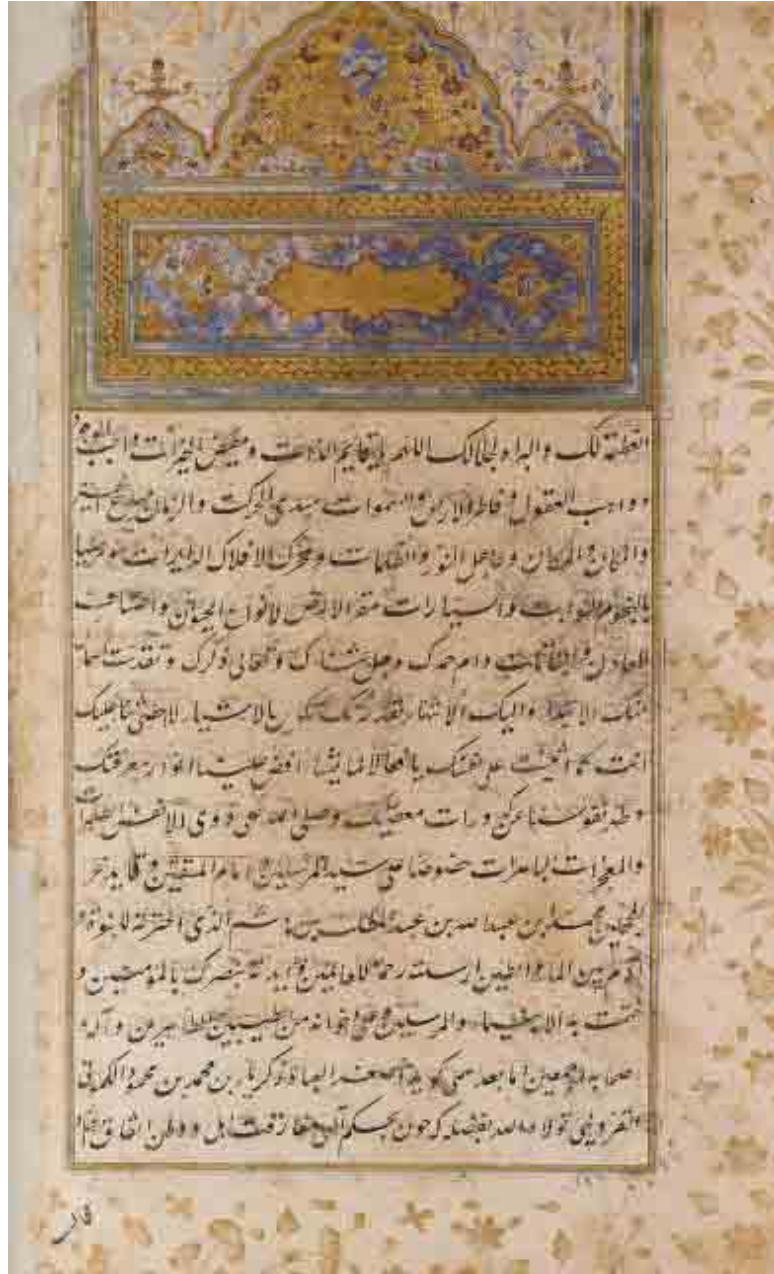 العظمة لک والکبریاء لجلالک اللهم یا قایم الذات ومفیض الخیرات واجب الوجود
وواهب العقول وفاطر الارض والسموات مبدی الحرکت والزمان مبدع
والمکان وجاعل النور والظلمات ومحرک الافلاک الدایرات
بالنجوم الثوابت والسیارات مقر الارض لانواع الحیوان واصناف
المعادن والنباتات دام حمدک وجل ثناک وتعالی ذکرک وتقدست اسما
منک الابتداء والیک الانتهاء لا احصی ثنا علیک
انت کما اثنیت علی نفسک یا فعالا لما یشا افض علینا انوار معرفتک
وطهر نفوسنا عن کدورات معصیتک وصلی الله علی ذوی الانفس الطاهرات
والمعجزات الباهرات خصوصا علی سید المرسلین امام المتقین وقاید غر
المحجلین محمد بن عبدالله بن عبدالمطلب بن هاشم الذی اخترته للنبوة و
آدم بین الماء والطین ارسلته رحمة للعالمین وایدته بنصرک بالمؤمنین و
ختمت به الانبیاء والمرسلین وعلی اخوانه من الطیبین الطاهرین وآله
اصحابه اجمعین اما بعد می کوید اصغر العباد زکریا بن محمد بن محمود الکمونی
القزوینی تولاه الله بفضله که چون بحکم الهی مفارقت اهل و وطن اتفاق افتاد